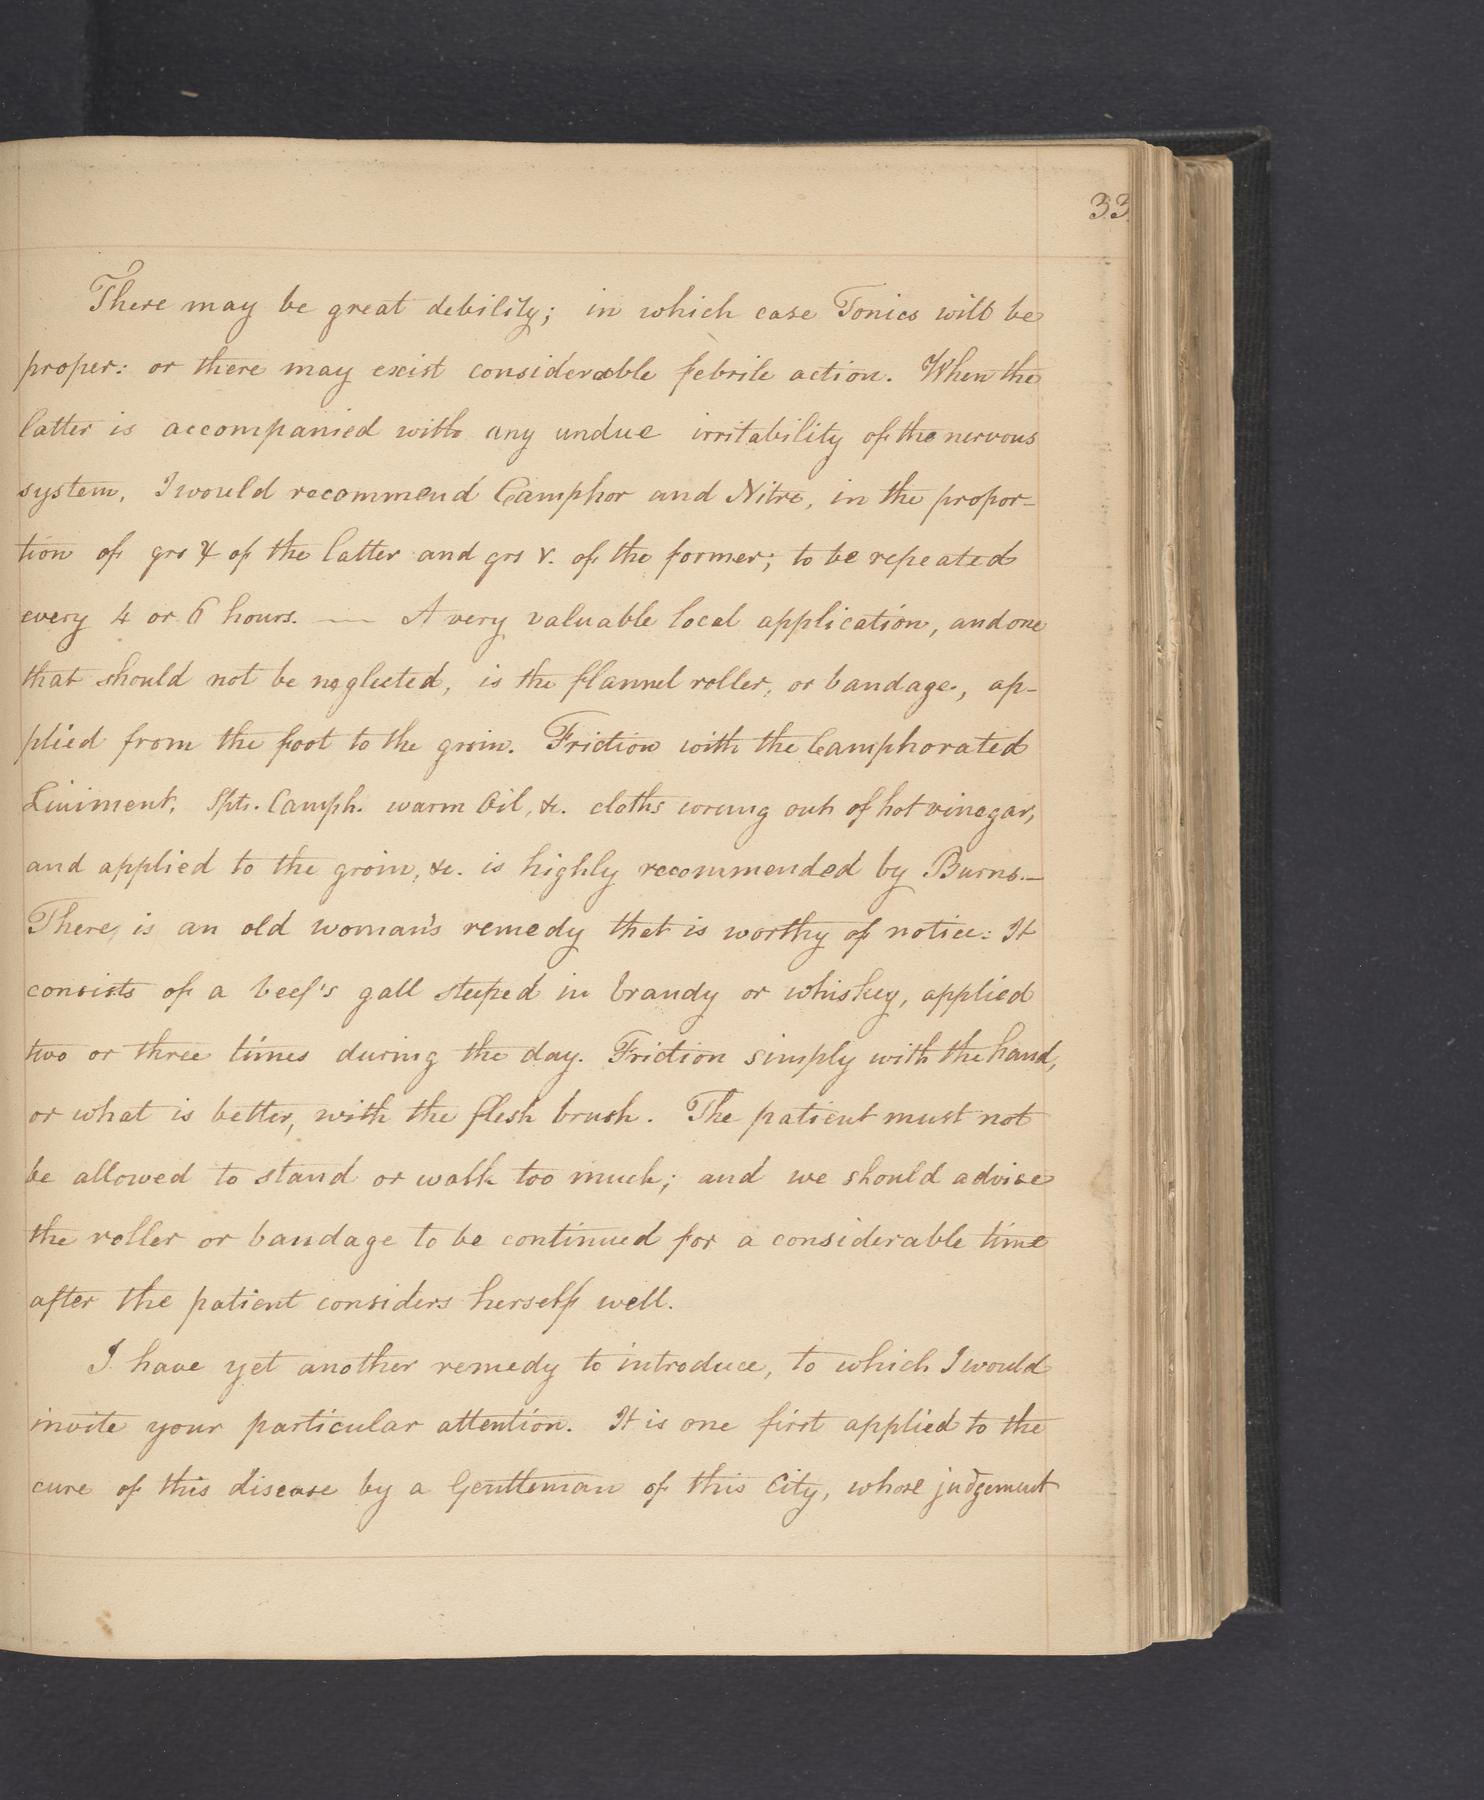 33
There may be great debility; in which case Tonics will be
proper: or there may exist considerable febrile action. When the
latter is accompanied with any undue irritability of the nervous
system, I would recommend Camphor and Nitre, in the propor-
tion of grs X of the latter and grs v. of the former; to be repeated
every 4 or 6 hours. — A very valuable local application, and one
that should not be neglected, is the flannel roller, or bandage, ap-
plied from the foot to the groin. Friction with the Camphorated
Liniment, Spts. Camph. warm Oil, &c. cloths wrung out of hot vinegar,
and applied to the groin, &c. is highly recommended by Burns.—
There is an old woman's remedy that is worthy of notice: It
consists of a beef's gall steeped in brandy or whiskey, applied
two or three times during the day. Friction simply with the hand,
or what is better, with the flesh brush. The patient must not
be allowed to stand or walk too much; and we should advise
the roller or bandage to be continued for a considerable time
after the patient considers herself well.
I have yet another remedy to introduce, to which I would
invite your particular attention. It is one first applied to the
cure of this disease by a Gentleman of this City, whose judgement